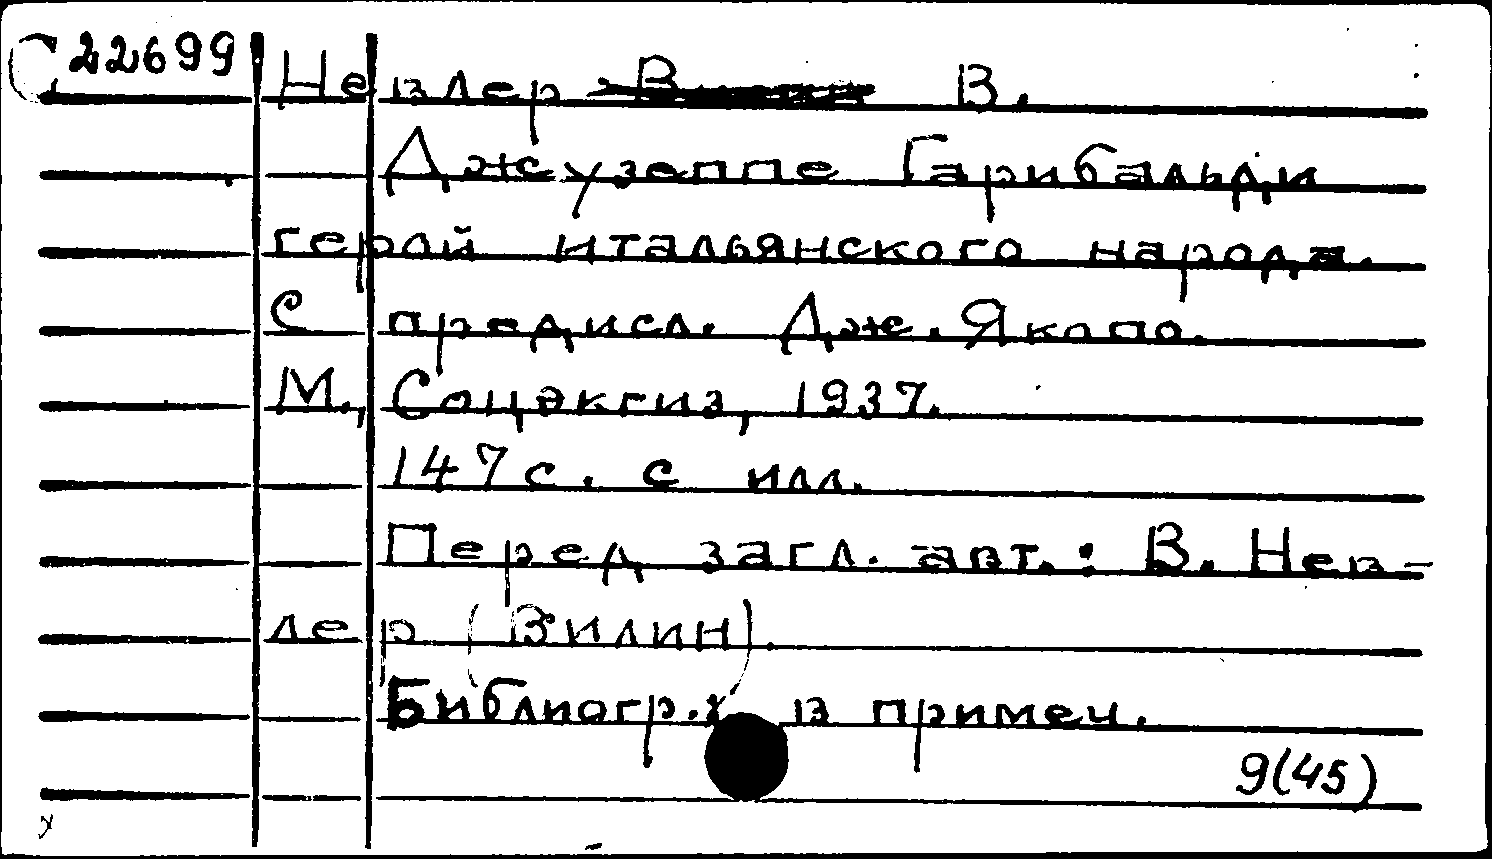 С 22699 Невлер В.
Джузеппе Гарибальди
герой итальянского народа.
С предисл. Дж. Якопо.
М., Соцэкгиз, 1937.
147 с. с илл.
Перед загл. авт.: В. Нев-
лер (Вилин).
Библиогр. в примеч.
9(45)